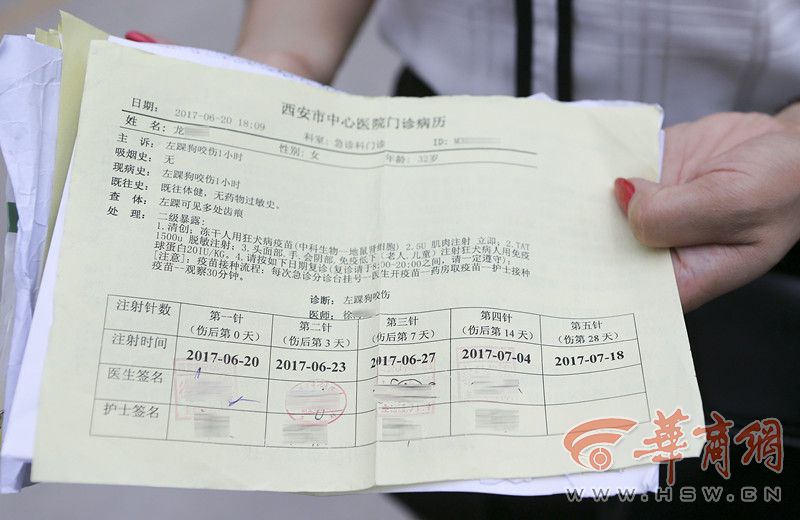 西安市中心医院门诊病历
日期: 2017-06-20 18:09
科室: 急诊科门诊 ID:
姓 名: 龙 性别: 女 年龄: 32岁
主 诉: 左踝狗咬伤1小时
吸烟史: 无
现病史: 左踝狗咬伤1小时
既往史: 既往体健,无药物过敏史。
查 体: 左踝可见多处齿痕
处 理: 二级暴露:
1.清创; 冻干人用狂犬病疫苗(中科生物一地鼠肾细胞) 2.5U 肌肉注射 立即; 2.TAT
1500u 脱敏注射; 3.头面部,手,会阴部,免疫低下[老人,儿童] 注射狂犬病人用免疫
球蛋白20IU/KG。4.请按如下日期复诊(复诊请于8:00-20:00之间, 请一定遵守);
[注意]: 疫苗接种流程: 每次急诊分诊台挂号一医生开疫苗一药房取疫苗一护士接种
疫苗一观察30分钟。
诊断: 左踝狗咬伤
医师: 徐
注射针数 第一针 第二针 第三针 第四针 第五针
(伤后第 0 天) (伤后第 3 天) (伤后第 7 天) (伤后第 14 天) (伤后第 28 天)
注射时间 2017-06-20 2017-06-23 2017-06-27 2017-07-04 2017-07-18
医生签名
护士签名
華商網
WWW.HSW.CN